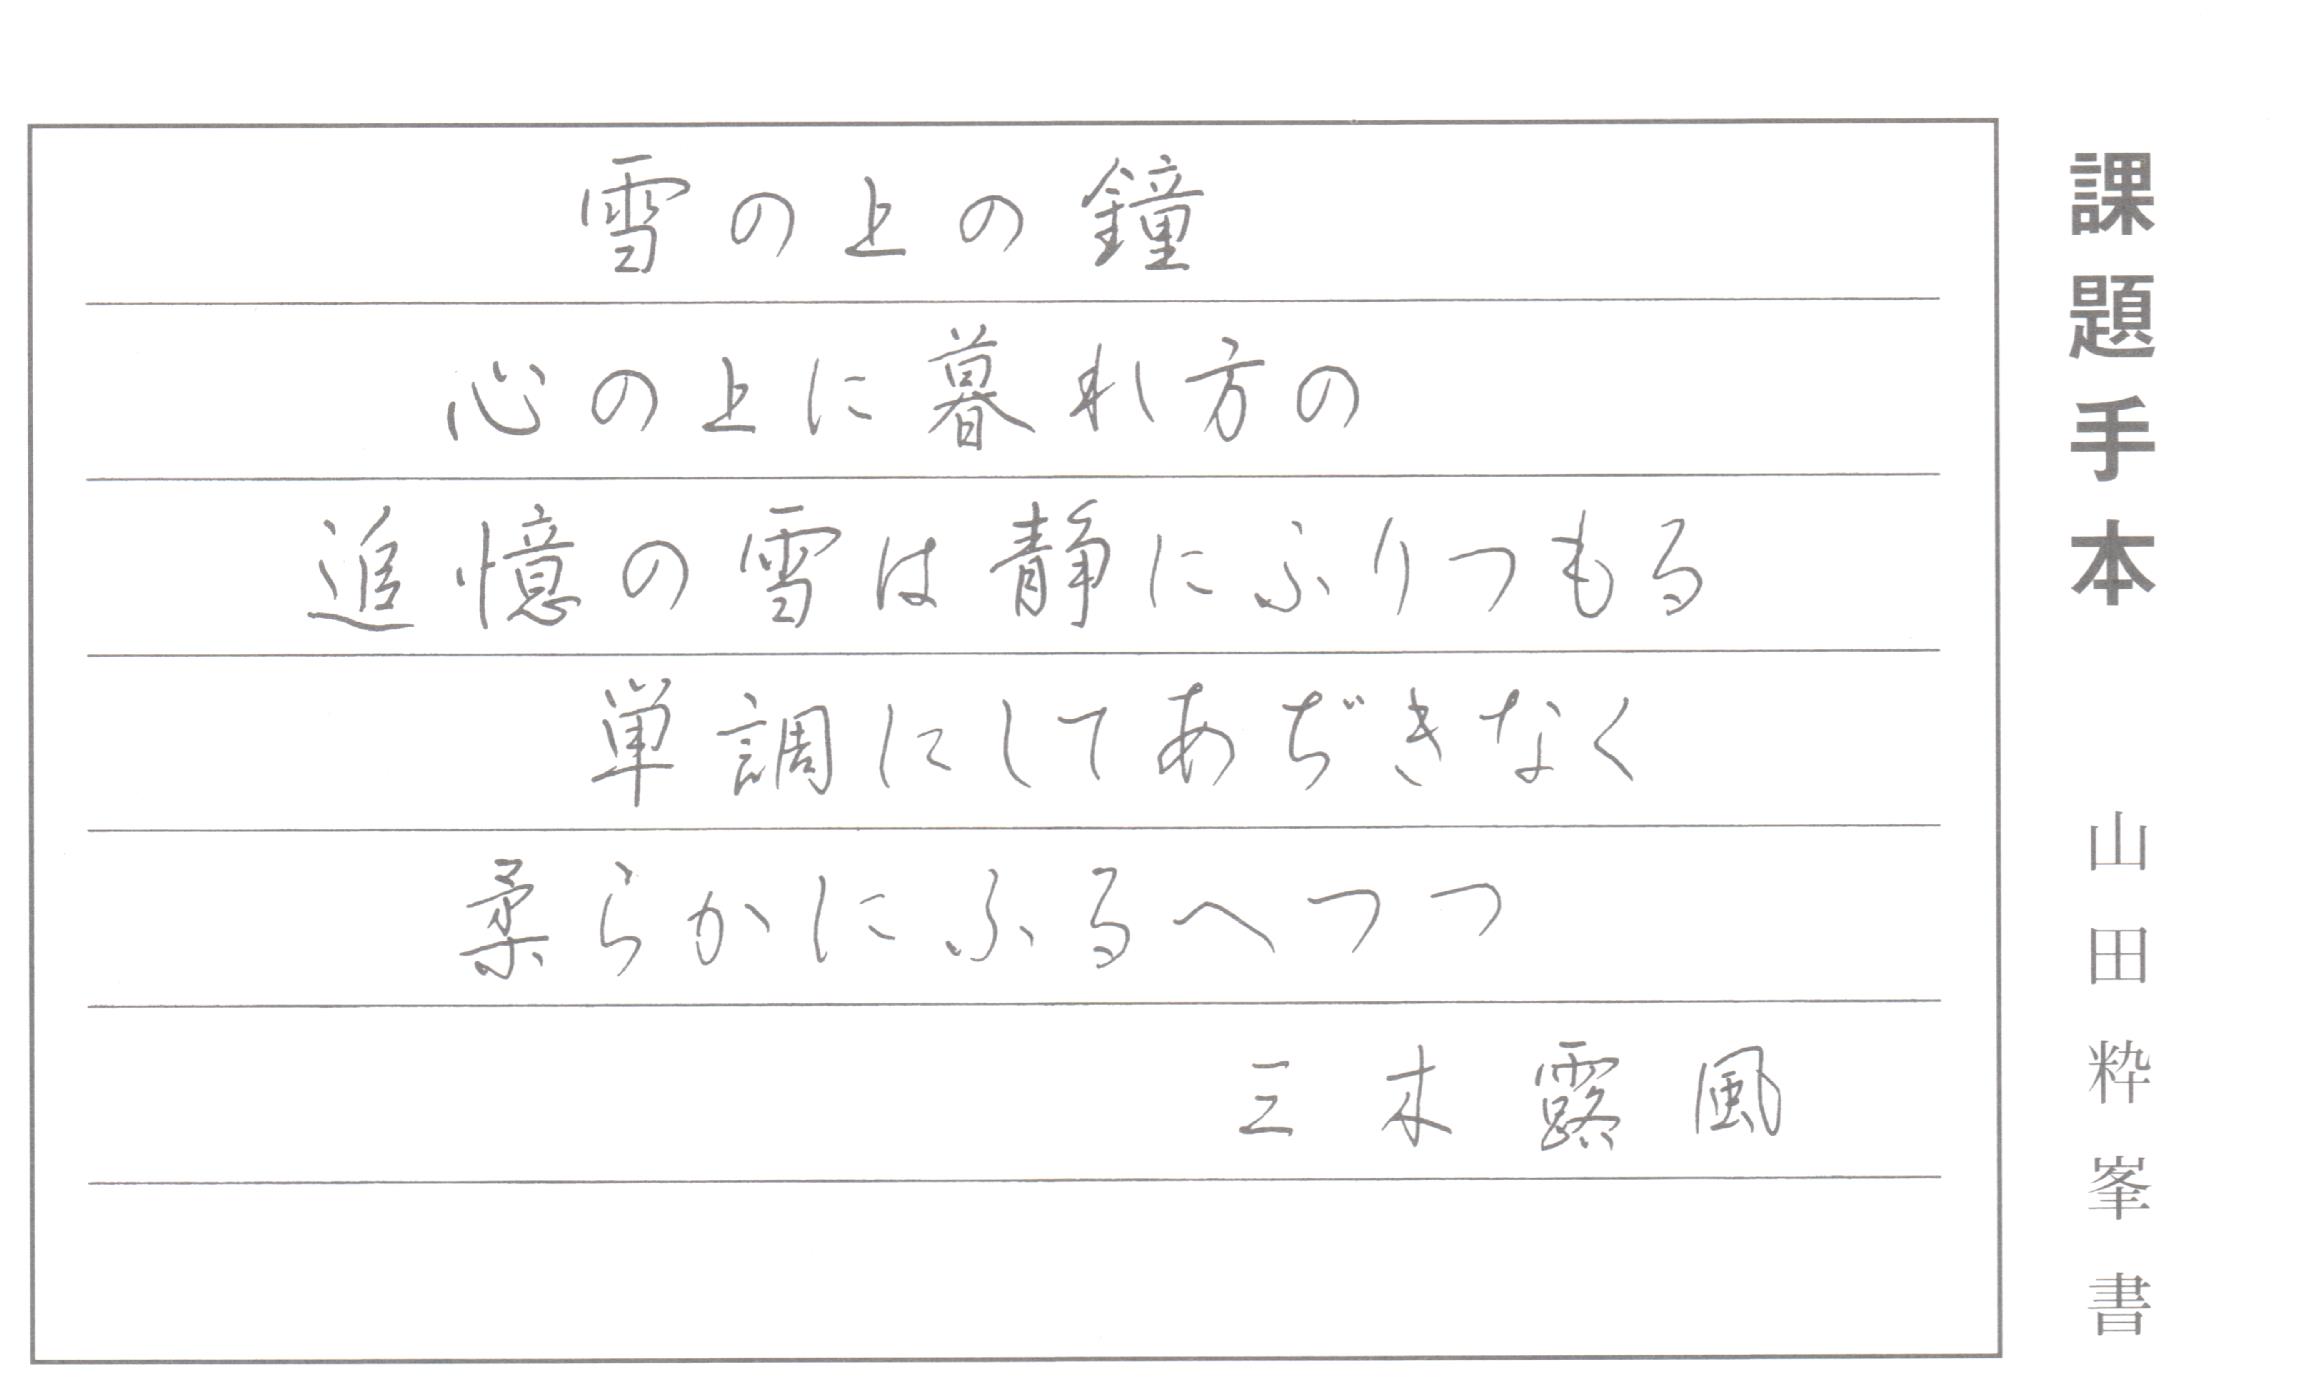 雪の上の鐘
心の上に暮れ方の
追憶の雪は静にふりつもる
単調にしてあぢきなく
柔らかにふるへつつ
三木露風
課題手本 山田粋峯書